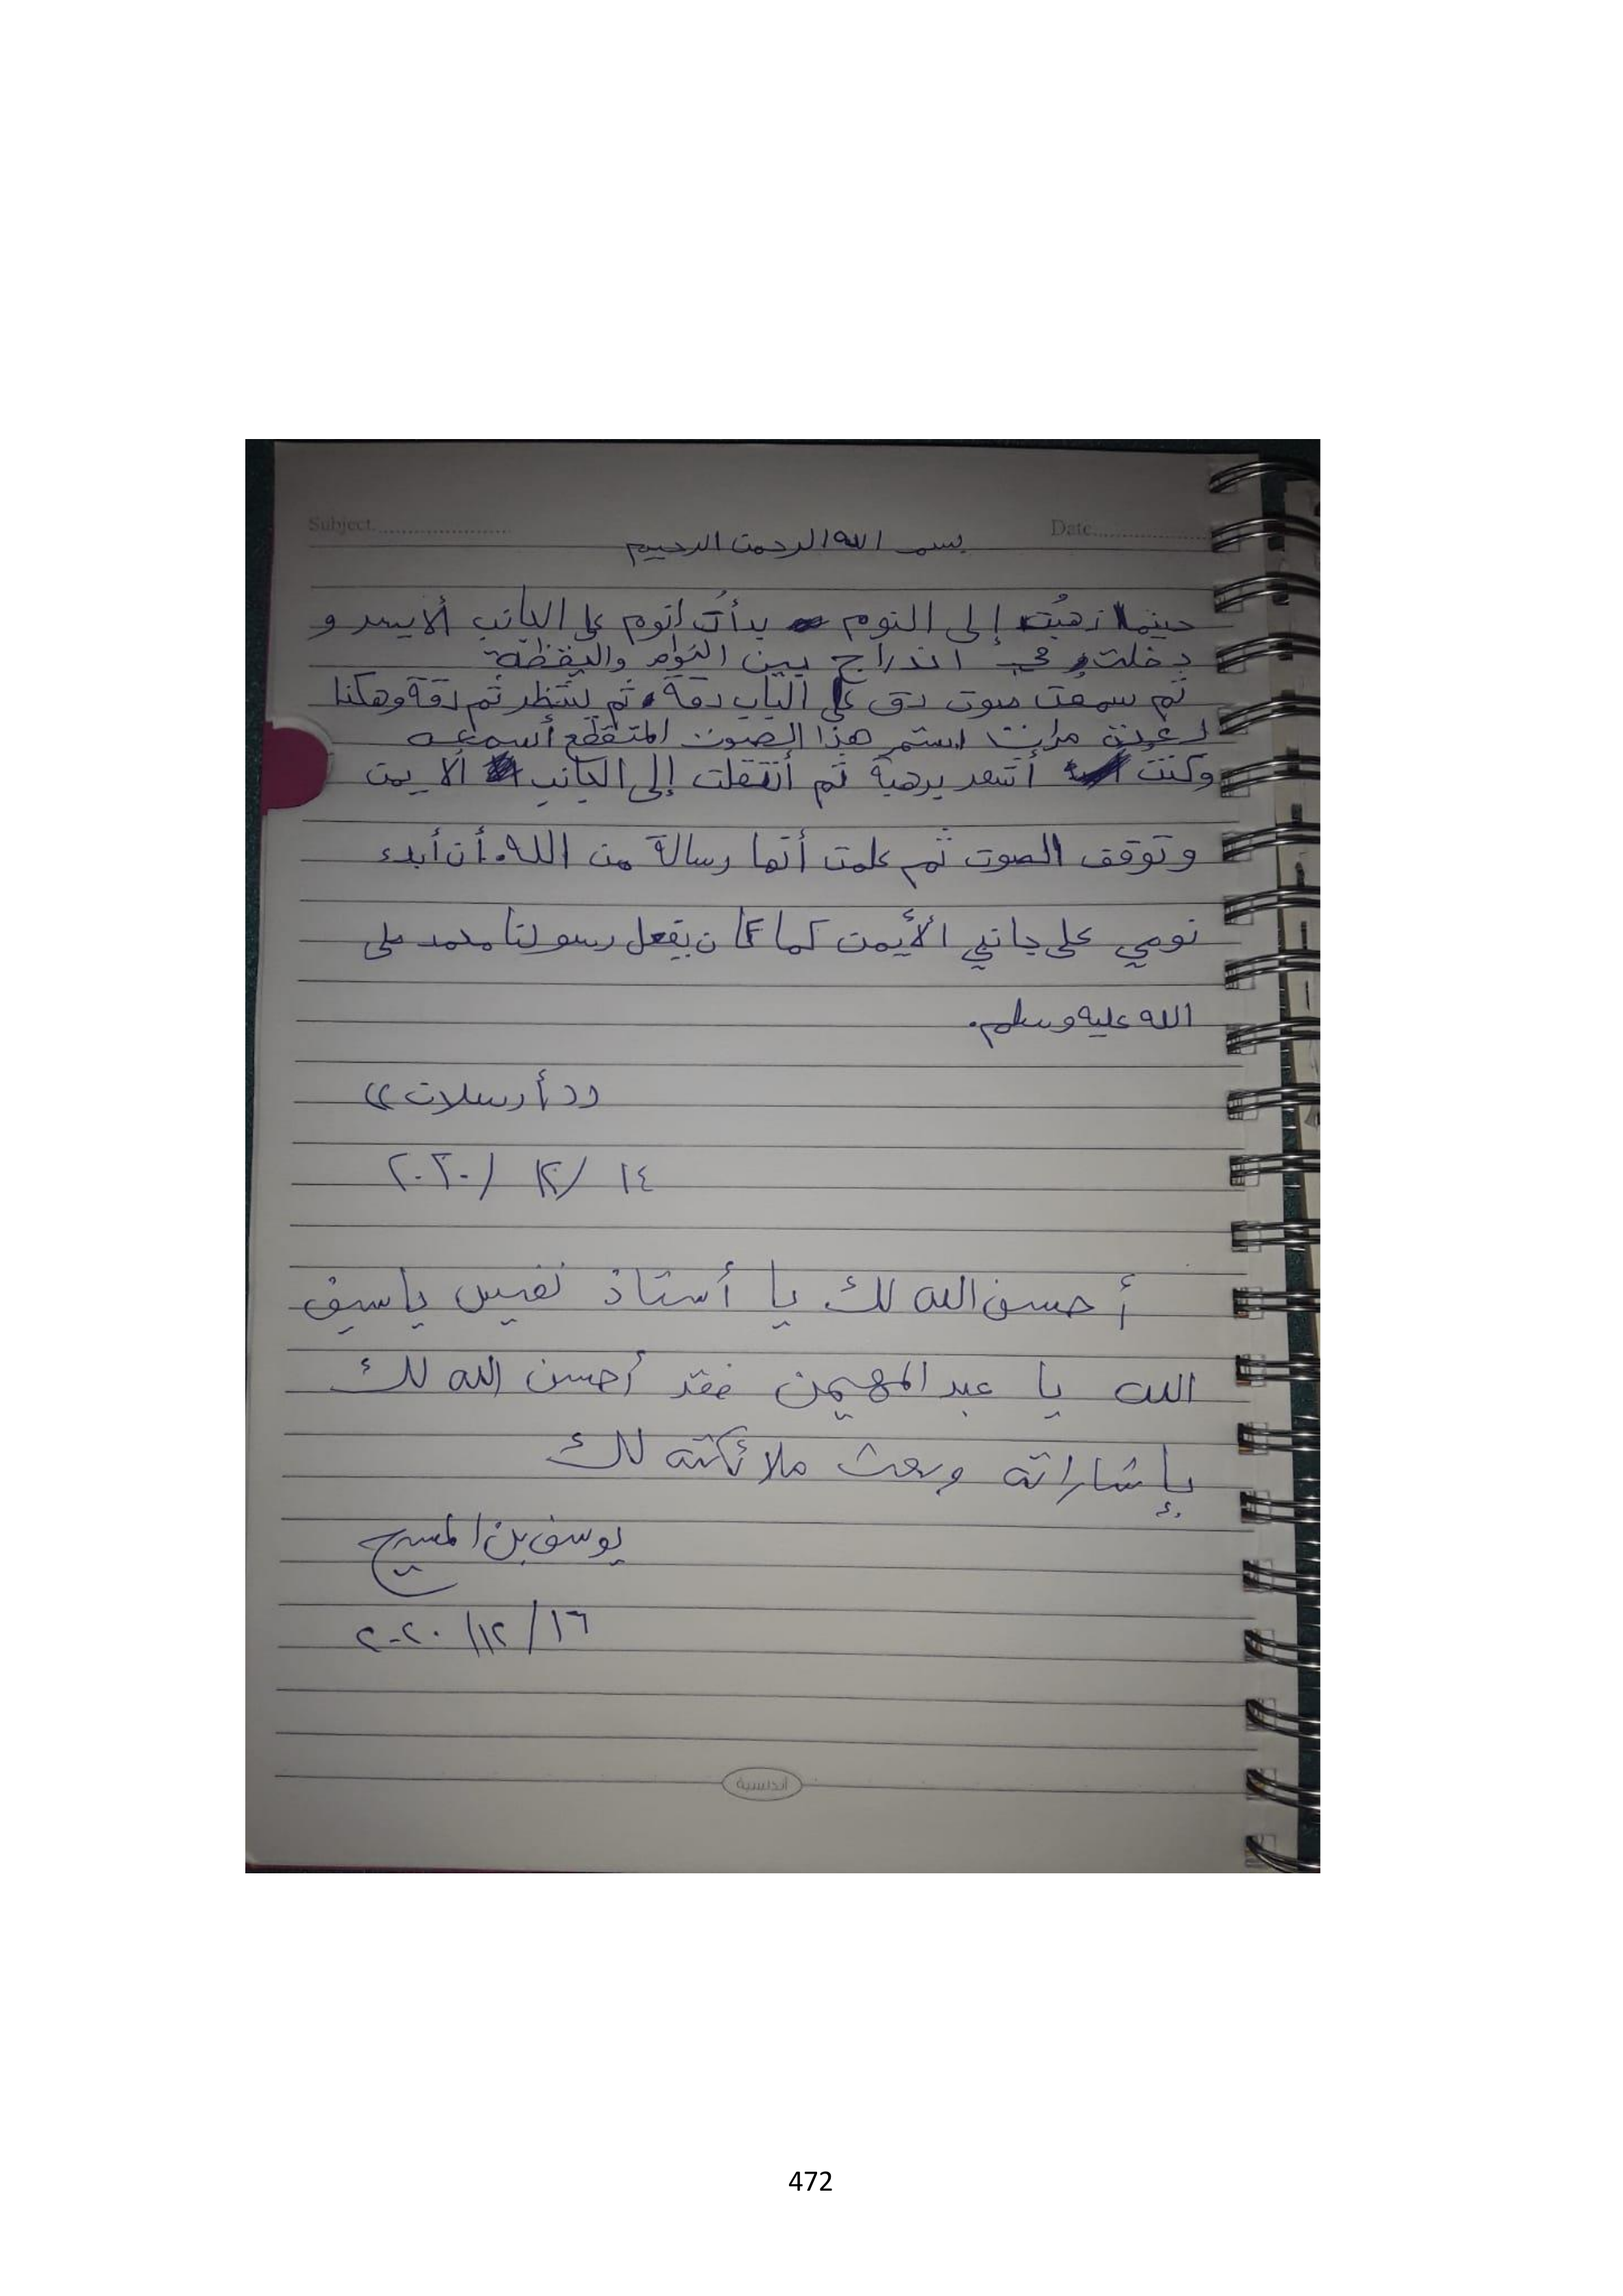 Subject
Date
بسم الله الرحمن الرحيم
حينما ذهبت إلى النوم بدأت انوم على الجانب الأيسر و
دخلت في اندراج بين النوم واليقظة
ثم سمعت صوت دق على الباب دقة ثم ينتظر ثم دقة وهكذا
لعدة مرات استمر هذا الصوت المتقطع أسمعه
وكنت أشعر برهبة ثم أنتقلت إلى الجانب الايمن
وتوقف الصوت ثم علمت أنها رسالة من الله. أن أبدء
نومي على جانبي الأيمن كما كان يفعل رسولنا محمد صلى
الله عليه وسلم.
((أرسلان))
١٤ / ١٢ / ٢٠٢٠
أحسن الله لك يا أستاذ نفيس يا سيف
الله يا عبد المهيمن فقد أحسن الله لك
بإشاراته وبعث ملائكته لك
يوسف بن المسيح
١٦ / ١٢ / ٢٠٢٠
أندلسية
472